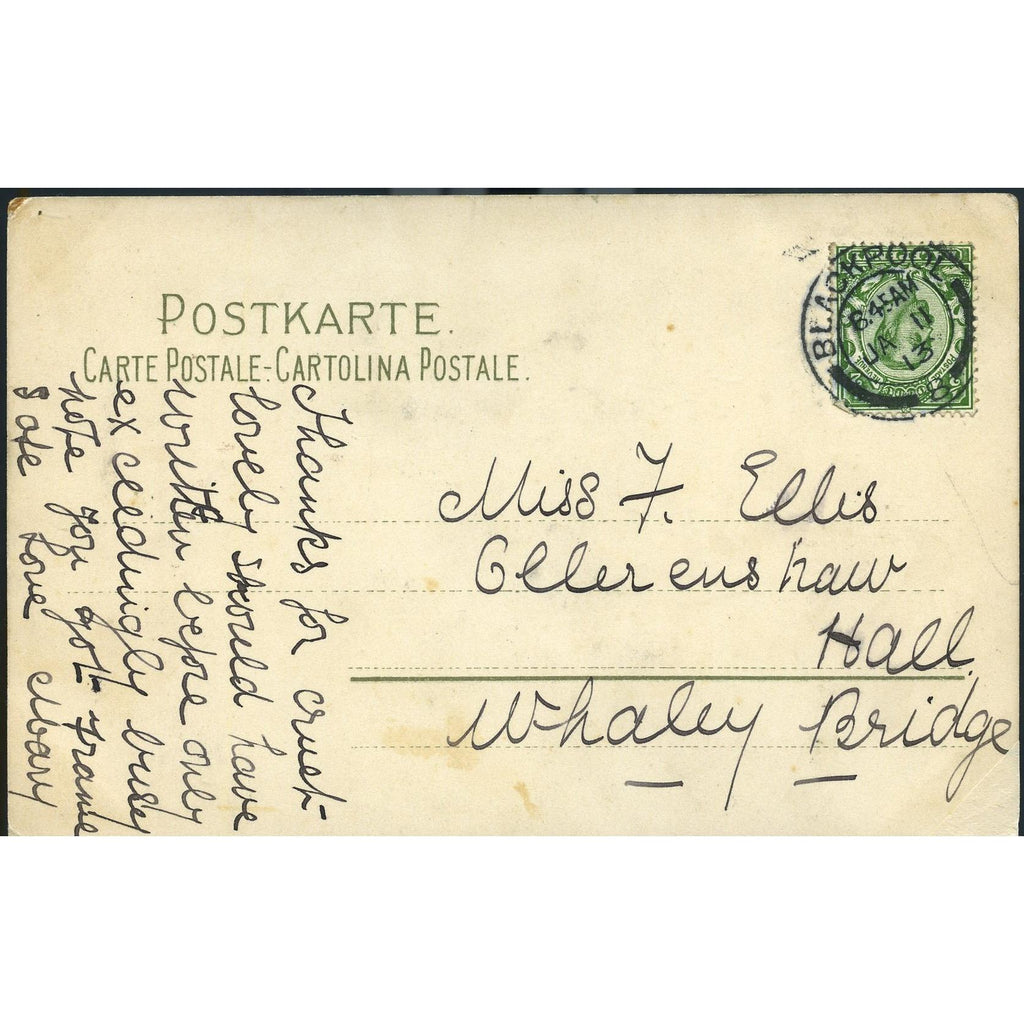 POSTKARTE.
CARTE POSTALE-CARTOLINA POSTALE.
BLACKPOOL
6.45AM
JA 11
13
Miss F. Ellis
Ollerenshaw
Hall
Whaley Bridge
Thanks for cruet
lovely should have
written before only
exceedingly busy
note you got frame
safe love Mary